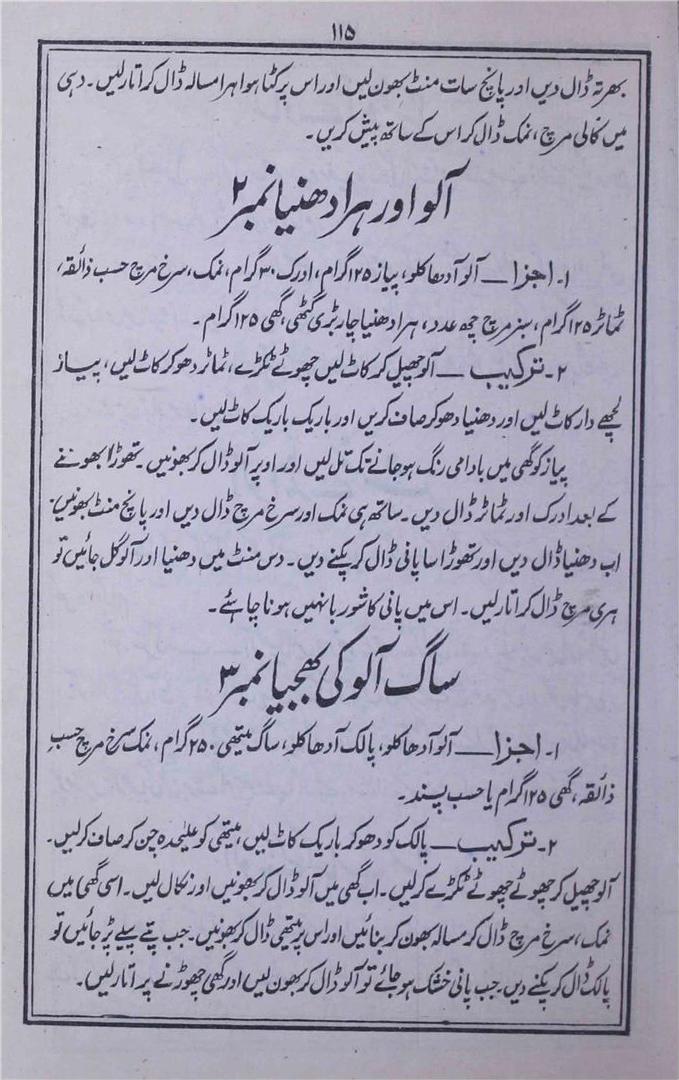 ۱۱۵
بھرتہ ڈال دیں اور پانچ سات منٹ بھون لیں اور اس پر کٹا ہوا ہرا مسالہ ڈال کر اتار لیں۔ دہی
میں کالی مرچ، نمک ڈال کر اس کے ساتھ پیش کریں۔
آلو اور ہرا دھنیا نمبر ۲
۱۔ اجزا — آلو آدھا کلو، پیاز ۱۲۵ گرام، ادرک ۳۰ گرام، نمک، سرخ مرچ حسب ذائقہ،
ٹماٹر ۱۲۵ گرام، سبز مرچ چھ عدد، ہرا دھنیا چار بڑی گٹھی، گھی ۱۲۵ گرام۔
۲۔ ترکیب — آلو چھیل کر کاٹ لیں چھوٹے ٹکڑے، ٹماٹر دھو کر کاٹ لیں، پیاز
لچھے دار کاٹ لیں اور دھنیا دھو کر صاف کریں اور باریک باریک کاٹ لیں۔
پیاز کو گھی میں بادامی رنگ ہو جانے تک تل لیں اور اوپر آلو ڈال کر بھونیں۔ تھوڑا بھوننے
کے بعد ادرک اور ٹماٹر ڈال دیں۔ ساتھ ہی نمک اور سرخ مرچ ڈال دیں اور پانچ منٹ بھونیں۔
اب دھنیا ڈال دیں اور تھوڑا سا پانی ڈال کر پکنے دیں۔ دس منٹ میں دھنیا اور آلو گل جائیں تو
ہری مرچ ڈال کر اتار لیں۔ اس میں پانی کا شوربا نہیں ہونا چاہئے۔
ساگ آلو کی بھجیا نمبر ۳
۱۔ اجزا — آلو آدھا کلو، پالک آدھا کلو، ساگ میتھی ۲۵۰ گرام، نمک سرخ مرچ حسبِ
ذائقہ، گھی ۱۲۵ گرام یا حسب پسند۔
۲۔ ترکیب — پالک کو دھو کر باریک کاٹ لیں، میتھی کو علیحدہ چن کر صاف کر لیں۔
آلو چھیل کر چھوٹے چھوٹے ٹکڑے کر لیں۔ اب گھی میں آلو ڈال کر بھونیں اور نکال لیں۔ اسی گھی میں
نمک، سرخ مرچ ڈال کر مسالہ بھون کر بنائیں اور اس پر میتھی ڈال کر بھونیں۔ جب پتے پیلے پڑ جائیں تو
پالک ڈال کر پکنے دیں۔ جب پانی خشک ہو جائے تو آلو ڈال کر بھون لیں اور گھی چھوڑنے پر اتار لیں۔